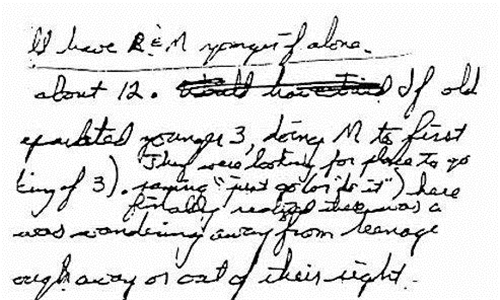 have R & M younger if alone.
about 12. If old
younger 3, doing M to first
They were looking for place to go
of 3). saying "just go to it") here
finally realized there was a
was wandering away from teenage
away or out of their sight.